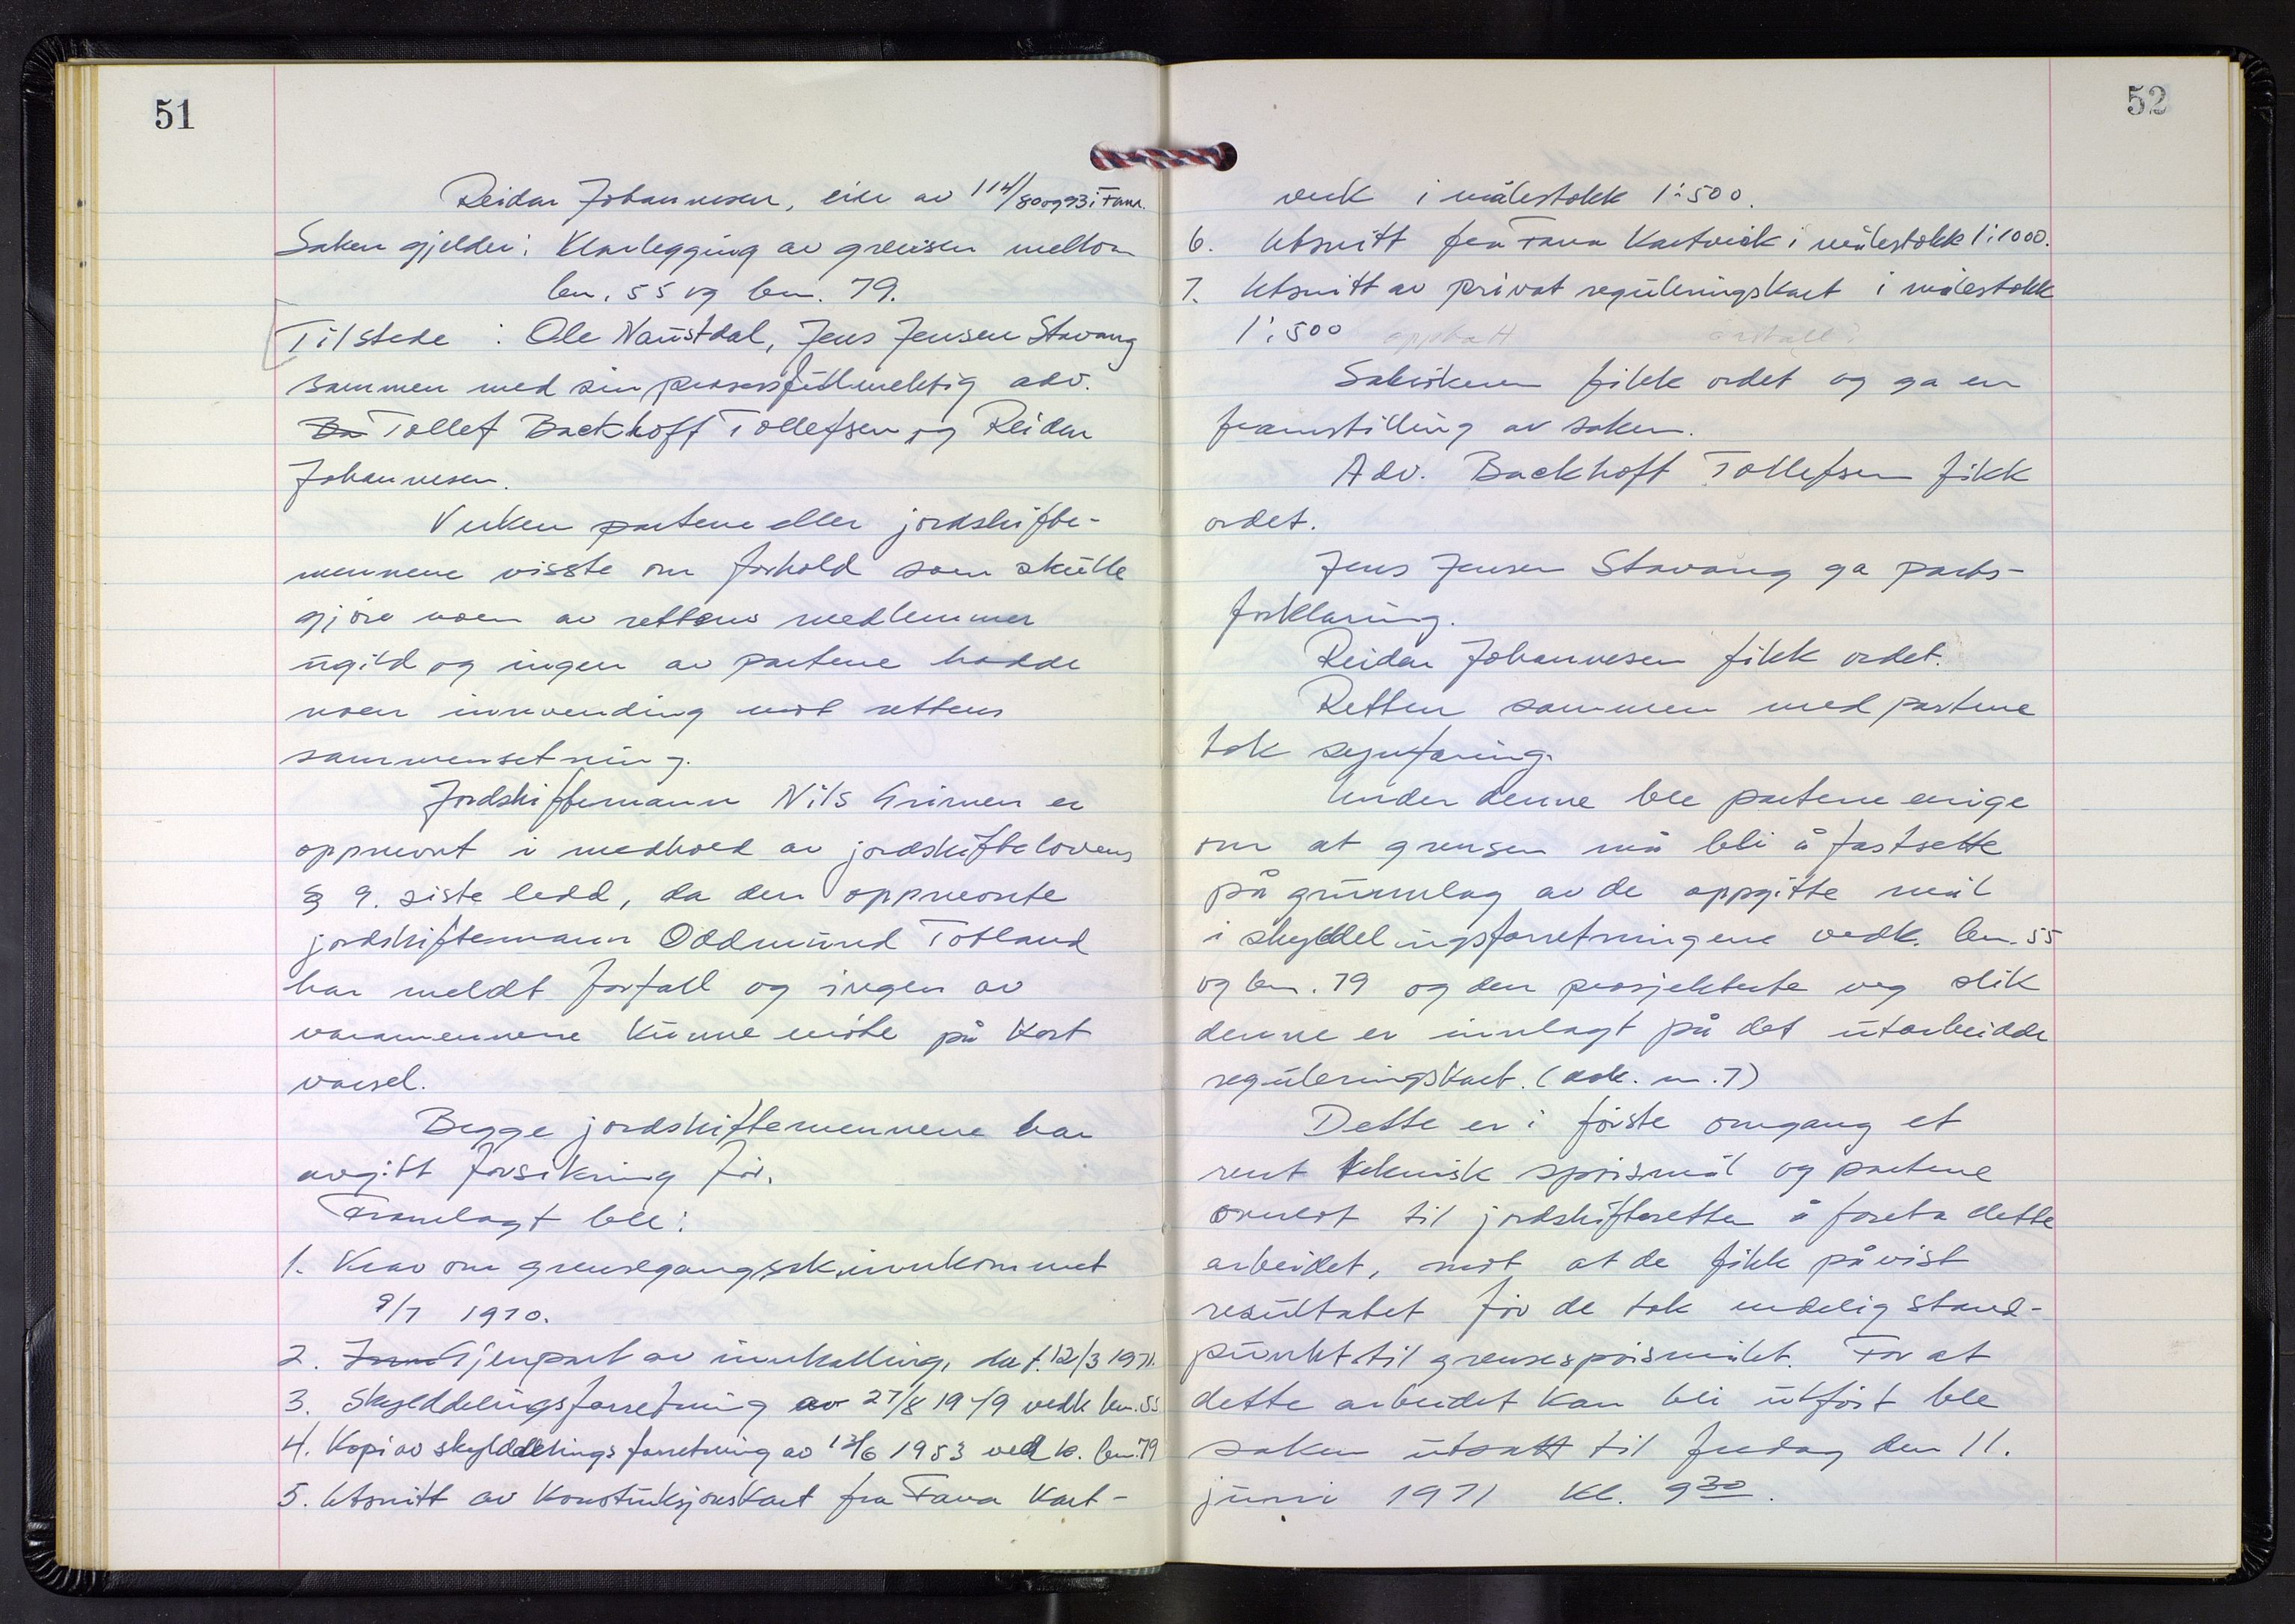 51
Reidar Johannesen, eier av 114/80 og 93 i Fana.
Saken gjelder: Klarlegging av grensen mellom
bnr. 55 og bnr. 79.
Tilstede : Ole Naustdal, Jens Jensen Stavang
sammen med sin prosessfullmektig adv.
Ba Tollef Backhoff Tollefsen og Reidar
Johannesen.
Verken partene eller jordskifte-
mennene visste om forhold som skulle
gjøre noen av rettens medlemmer
ugild og ingen av partene hadde
noen innvending mot rettens
sammensetning.
Jordskiftemann Nils Grimen er
oppnevnt i medhold av jordskiftelovens
§ 9. siste ledd, da den oppnevnte
jordskiftemann Oddmund Totland
har meldt forfall og ingen av
varamennene kunne møte på kort
varsel.
Begge jordskiftemennene har
avgitt forsikring før.
Framlagt ble:
1. Krav om grensegangssak, innkommet
9/7 1970.
2. Gjenpart av innkalling, dat. 12/3 1971.
3. Skylddelingsforretning av 27/8 1949 vedk. bnr. 55
4. Kopi av skylddelingsforretning av 12/6 1953 vedk. bnr. 79
5. Utsnitt av konstruksjonskart fra Fana kart-
52
verk i målestokk 1:500.
6. Utsnitt fra Fana Kartverk i målestokk 1:1000.
7. Utsnitt av privat reguleringskart i målestokk
1:500
Saksøkeren fikk ordet og ga en
framstilling av saken.
Adv. Backhoff Tollefsen fikk
ordet.
Jens Jensen Stavang ga parts-
forklaring.
Reidar Johannesen fikk ordet.
Retten sammen med partene
tok synfaring.
Under denne ble partene enige
om at grensen må bli å fastsette
på grunnlag av de oppgitte mål
i skylddelingsforretningene vedk. bnr. 55
og bnr. 79 og den prosjekterte veg slik
denne er innlagt på det utarbeidde
reguleringskart. (dok. nr. 7)
Dette er i første omgang et
rent teknisk spørsmål og partene
overlot til jordskifteretten å foreta dette
arbeidet, mot at de fikk påvist
resultatet før de tok endelig stand-
punkt til grensespørsmålet. For at
dette arbeidet kan bli utført ble
saken utsatt til fredag den 11.
juni 1971 kl. 9 30.